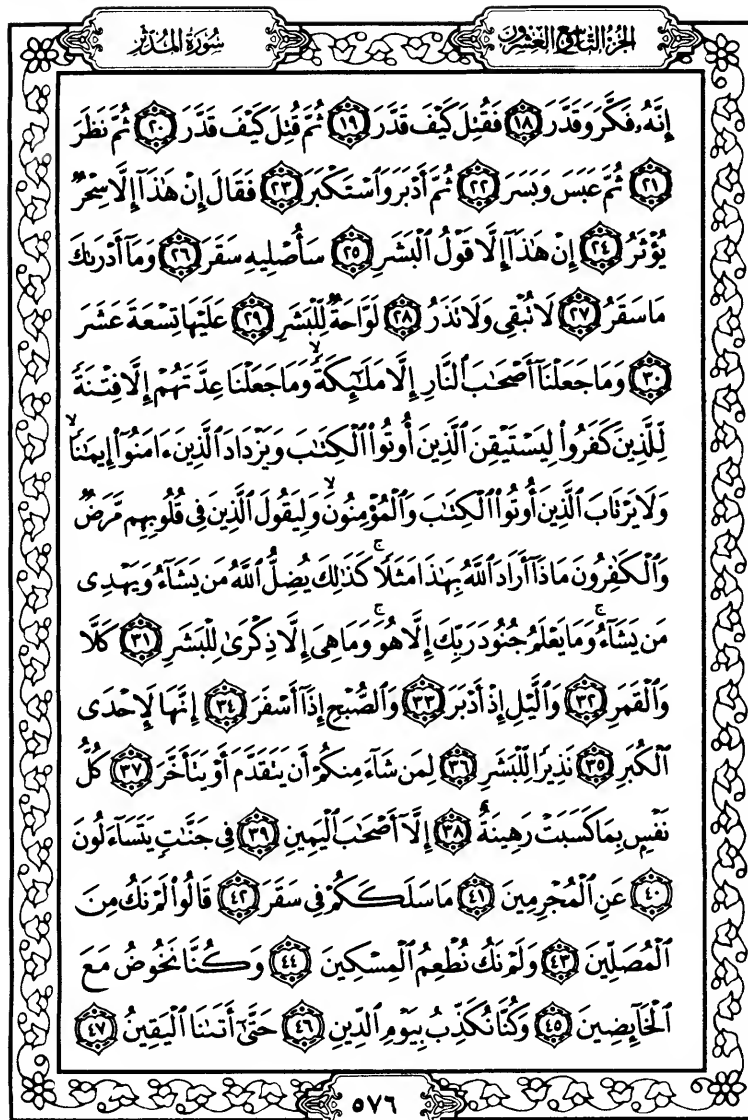 الجزء التاسع والعشرون
سورة المدثر
إِنَّهُۥ فَكَّرَ وَقَدَّرَ ۝١٨ فَقُتِلَ كَيْفَ قَدَّرَ ۝١٩ ثُمَّ قُتِلَ كَيْفَ قَدَّرَ ۝٢٠ ثُمَّ نَظَرَ
۝٢١ ثُمَّ عَبَسَ وَبَسَرَ ۝٢٢ ثُمَّ أَدْبَرَ وَٱسْتَكْبَرَ ۝٢٣ فَقَالَ إِنْ هَٰذَآ إِلَّا سِحْرٌ
يُؤْثَرُ ۝٢٤ إِنْ هَٰذَآ إِلَّا قَوْلُ ٱلْبَشَرِ ۝٢٥ سَأُصْلِيهِ سَقَرَ ۝٢٦ وَمَآ أَدْرَىٰكَ
مَا سَقَرُ ۝٢٧ لَا تُبْقِى وَلَا تَذَرُ ۝٢٨ لَوَّاحَةٌ لِّلْبَشَرِ ۝٢٩ عَلَيْهَا تِسْعَةَ عَشَرَ
۝٣٠ وَمَا جَعَلْنَآ أَصْحَٰبَ ٱلنَّارِ إِلَّا مَلَٰٓئِكَةً ۙ وَمَا جَعَلْنَا عِدَّتَهُمْ إِلَّا فِتْنَةً
لِّلَّذِينَ كَفَرُوا۟ لِيَسْتَيْقِنَ ٱلَّذِينَ أُوتُوا۟ ٱلْكِتَٰبَ وَيَزْدَادَ ٱلَّذِينَ ءَامَنُوٓا۟ إِيمَٰنًا ۙ
وَلَا يَرْتَابَ ٱلَّذِينَ أُوتُوا۟ ٱلْكِتَٰبَ وَٱلْمُؤْمِنُونَ ۙ وَلِيَقُولَ ٱلَّذِينَ فِى قُلُوبِهِم مَّرَضٌ
وَٱلْكَٰفِرُونَ مَاذَآ أَرَادَ ٱللَّهُ بِهَٰذَا مَثَلًا ۚ كَذَٰلِكَ يُضِلُّ ٱللَّهُ مَن يَشَآءُ وَيَهْدِى
مَن يَشَآءُ ۚ وَمَا يَعْلَمُ جُنُودَ رَبِّكَ إِلَّا هُوَ ۚ وَمَا هِىَ إِلَّا ذِكْرَىٰ لِلْبَشَرِ ۝٣١ كَلَّا
وَٱلْقَمَرِ ۝٣٢ وَٱلَّيْلِ إِذْ أَدْبَرَ ۝٣٣ وَٱلصُّبْحِ إِذَآ أَسْفَرَ ۝٣٤ إِنَّهَا لَإِحْدَى
ٱلْكُبَرِ ۝٣٥ نَذِيرًا لِّلْبَشَرِ ۝٣٦ لِمَن شَآءَ مِنكُمْ أَن يَتَقَدَّمَ أَوْ يَتَأَخَّرَ ۝٣٧ كُلُّ
نَفْسٍۭ بِمَا كَسَبَتْ رَهِينَةٌ ۝٣٨ إِلَّآ أَصْحَٰبَ ٱلْيَمِينِ ۝٣٩ فِى جَنَّٰتٍ يَتَسَآءَلُونَ
۝٤٠ عَنِ ٱلْمُجْرِمِينَ ۝٤١ مَا سَلَكَكُمْ فِى سَقَرَ ۝٤٢ قَالُوا۟ لَمْ نَكُ مِنَ
ٱلْمُصَلِّينَ ۝٤٣ وَلَمْ نَكُ نُطْعِمُ ٱلْمِسْكِينَ ۝٤٤ وَكُنَّا نَخُوضُ مَعَ
ٱلْخَآئِضِينَ ۝٤٥ وَكُنَّا نُكَذِّبُ بِيَوْمِ ٱلدِّينِ ۝٤٦ حَتَّىٰٓ أَتَىٰنَا ٱلْيَقِينُ ۝٤٧
٥٧٦